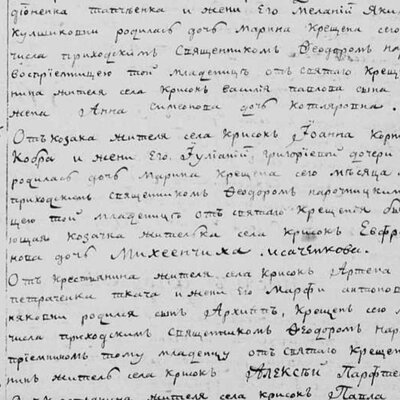 діонейка тапчвенка и жены его Меланій Яки
Кулшиковни родилась дочь Марина Крещена сего
числа приходскимъ Священтикомъ Ѳеодоромъ нар
воспріетицею той младенцу отъ святаго Креще
ница жителя села Крисокъ василія павлова сына
жена Анна симонова дочь Котляровна.
Отъ козака жителя села Крисокъ Іоанна Корн
Кобра и жены его Іуліаній григоріевой дочери
родилась дочь Марина Крещена сего мѣсяца
приходскимъ священтикомъ Ѳеодоромъ нарочицкимъ
щею той младенцу отъ святаго Крещенія бы
ющая козачка жителька села крисокъ Евфро
нова дочь Михеенчиха исаченкова.
Отъ крестьянина жителя села крисокъ Артема
петраченка ткача и жены его Марфи антонов
няковни родился сынъ Архипъ, Крещенъ сего
числа приходскимъ священтикомъ Ѳеодоромъ нар
пріемникомъ тому младенцу отъ святаго Крещен
нинъ житель села крисокъ Алексѣй Парфе
жителя села крисокъ Павла